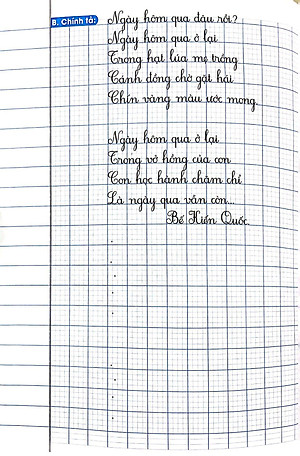 B. Chính tả:
Ngày hôm qua đâu rồi?
Ngày hôm qua ở lại
Trong hạt lúa mẹ trồng
Cánh đồng chờ gặt hái
Chín vàng màu ước mong.
Ngày hôm qua ở lại
Trong vở hồng của con
Con học hành chăm chỉ
Là ngày qua vẫn còn...
Bế Kiến Quốc.